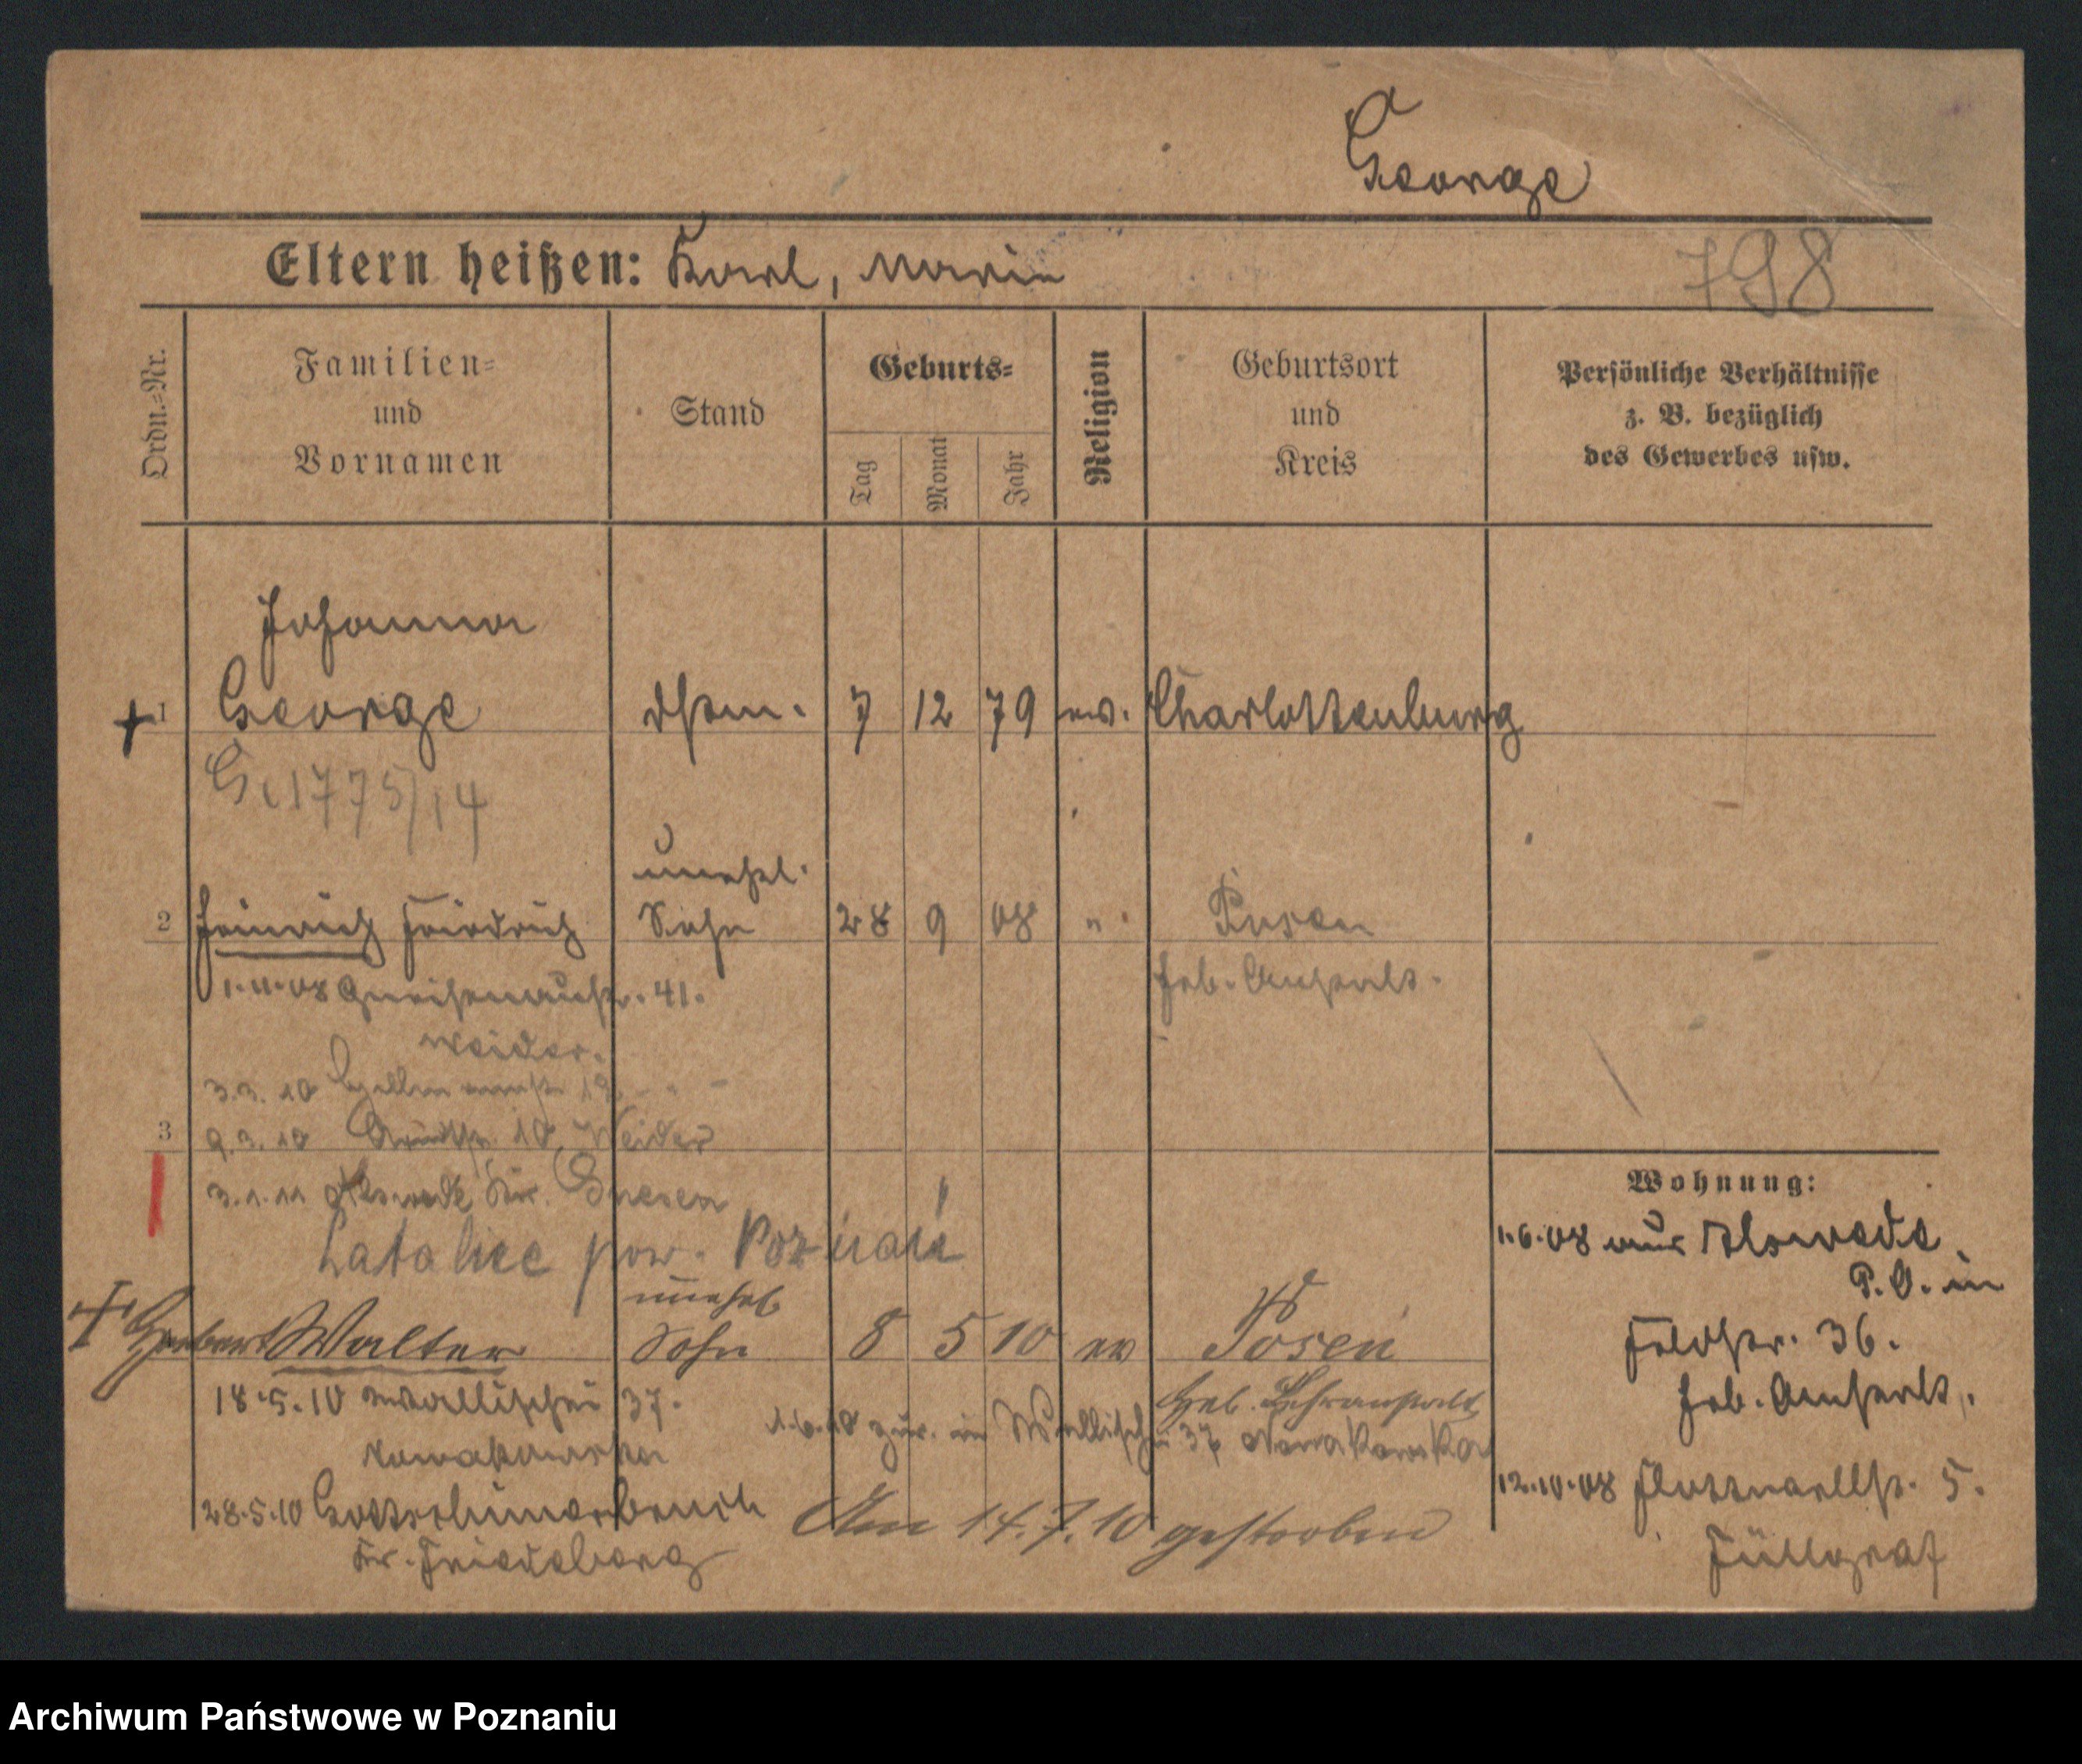 George
Eltern heißen: Karl, Marie
798
Ordn.=Nr.
Familien=
und
Vornamen
Stand
Geburts=
Tag
Monat
Jahr
Religion
Geburtsort
und
Kreis
Persönliche Verhältnisse
z. B. bezüglich
des Gewerbes usw.
Johanna
1 George 7 12 79 ev. Charlottenburg
G. 1775/14
unehel.
2 Heinrich Friedrich Sohn 28 9 08 " Posen
1.11.08 Gneisenaustr. 41. Heb. Anstalt.
Weider.
3.3.10
3 9.3.10 10 Weider
3.1.11 Kr. Gnesen
Latalice pow. Poznań
Wohnung:
1.6.08 aus
P. O. in
Feldstr. 36.
Heb. Anstalt.
12.10.08 5.
Füllgraf
unehel
Herbert Walter Sohn 8 5 10 ev Posen
18.5.10 Wallischei 37. Heb. Lehranstalt
Nowakowska 1.6.10 zur. in Wallischei 37 Nowakowska
28.5.10 Gottschimerbruch
Kr. Friedeberg
Am 14.7.10 gestorben
Archiwum Państwowe w Poznaniu